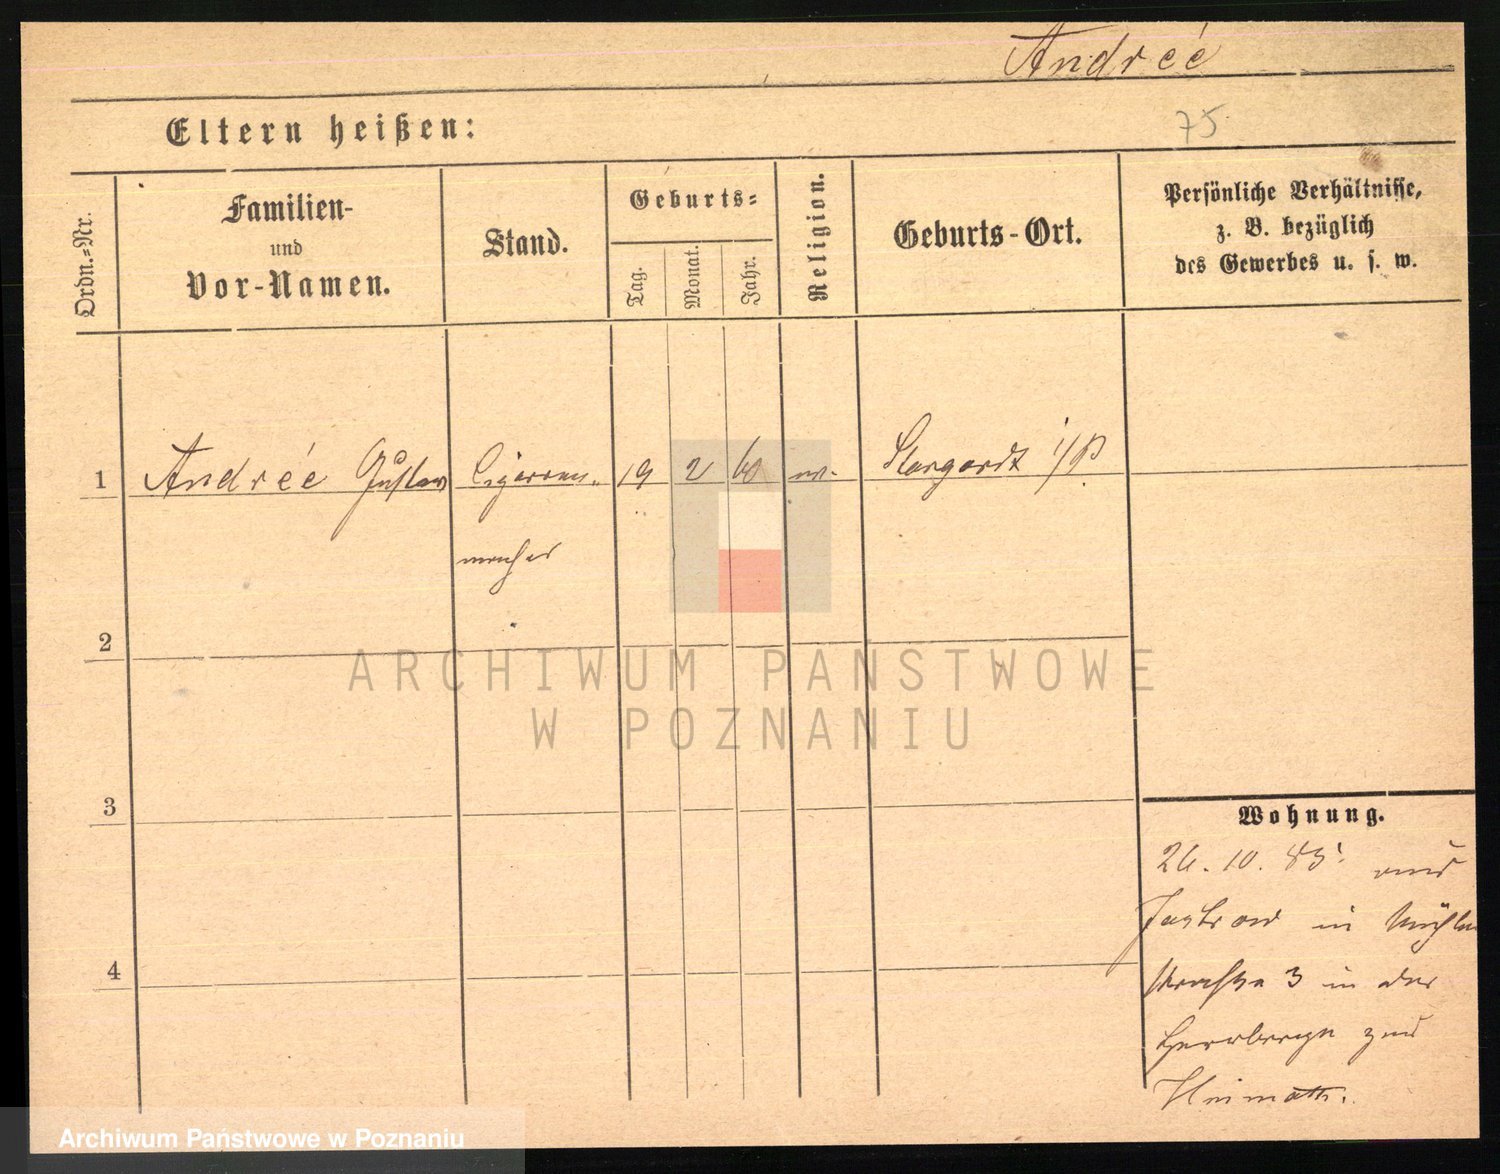 Andrée
75
Eltern heißen:
Ordn.=Nr.
Familien-
und
Vor-Namen.
Stand.
Geburts=
Tag.
Monat.
Jahr.
Religion.
Geburts-Ort.
Persönliche Verhältnisse,
z. B. bezüglich
des Gewerbes u. s. w.
1 Andrée Gustav Cigarren- 19 2 60 Stargardt i/P.
macher
2
ARCHIWUM PANSTWOWE
W POZNANIU
3
Wohnung.
26. 10. 85. aus
Jastrow in Mühlen
strasse 3 in der
4
Herberge zur
Heimath.
Archiwum Państwowe w Poznaniu